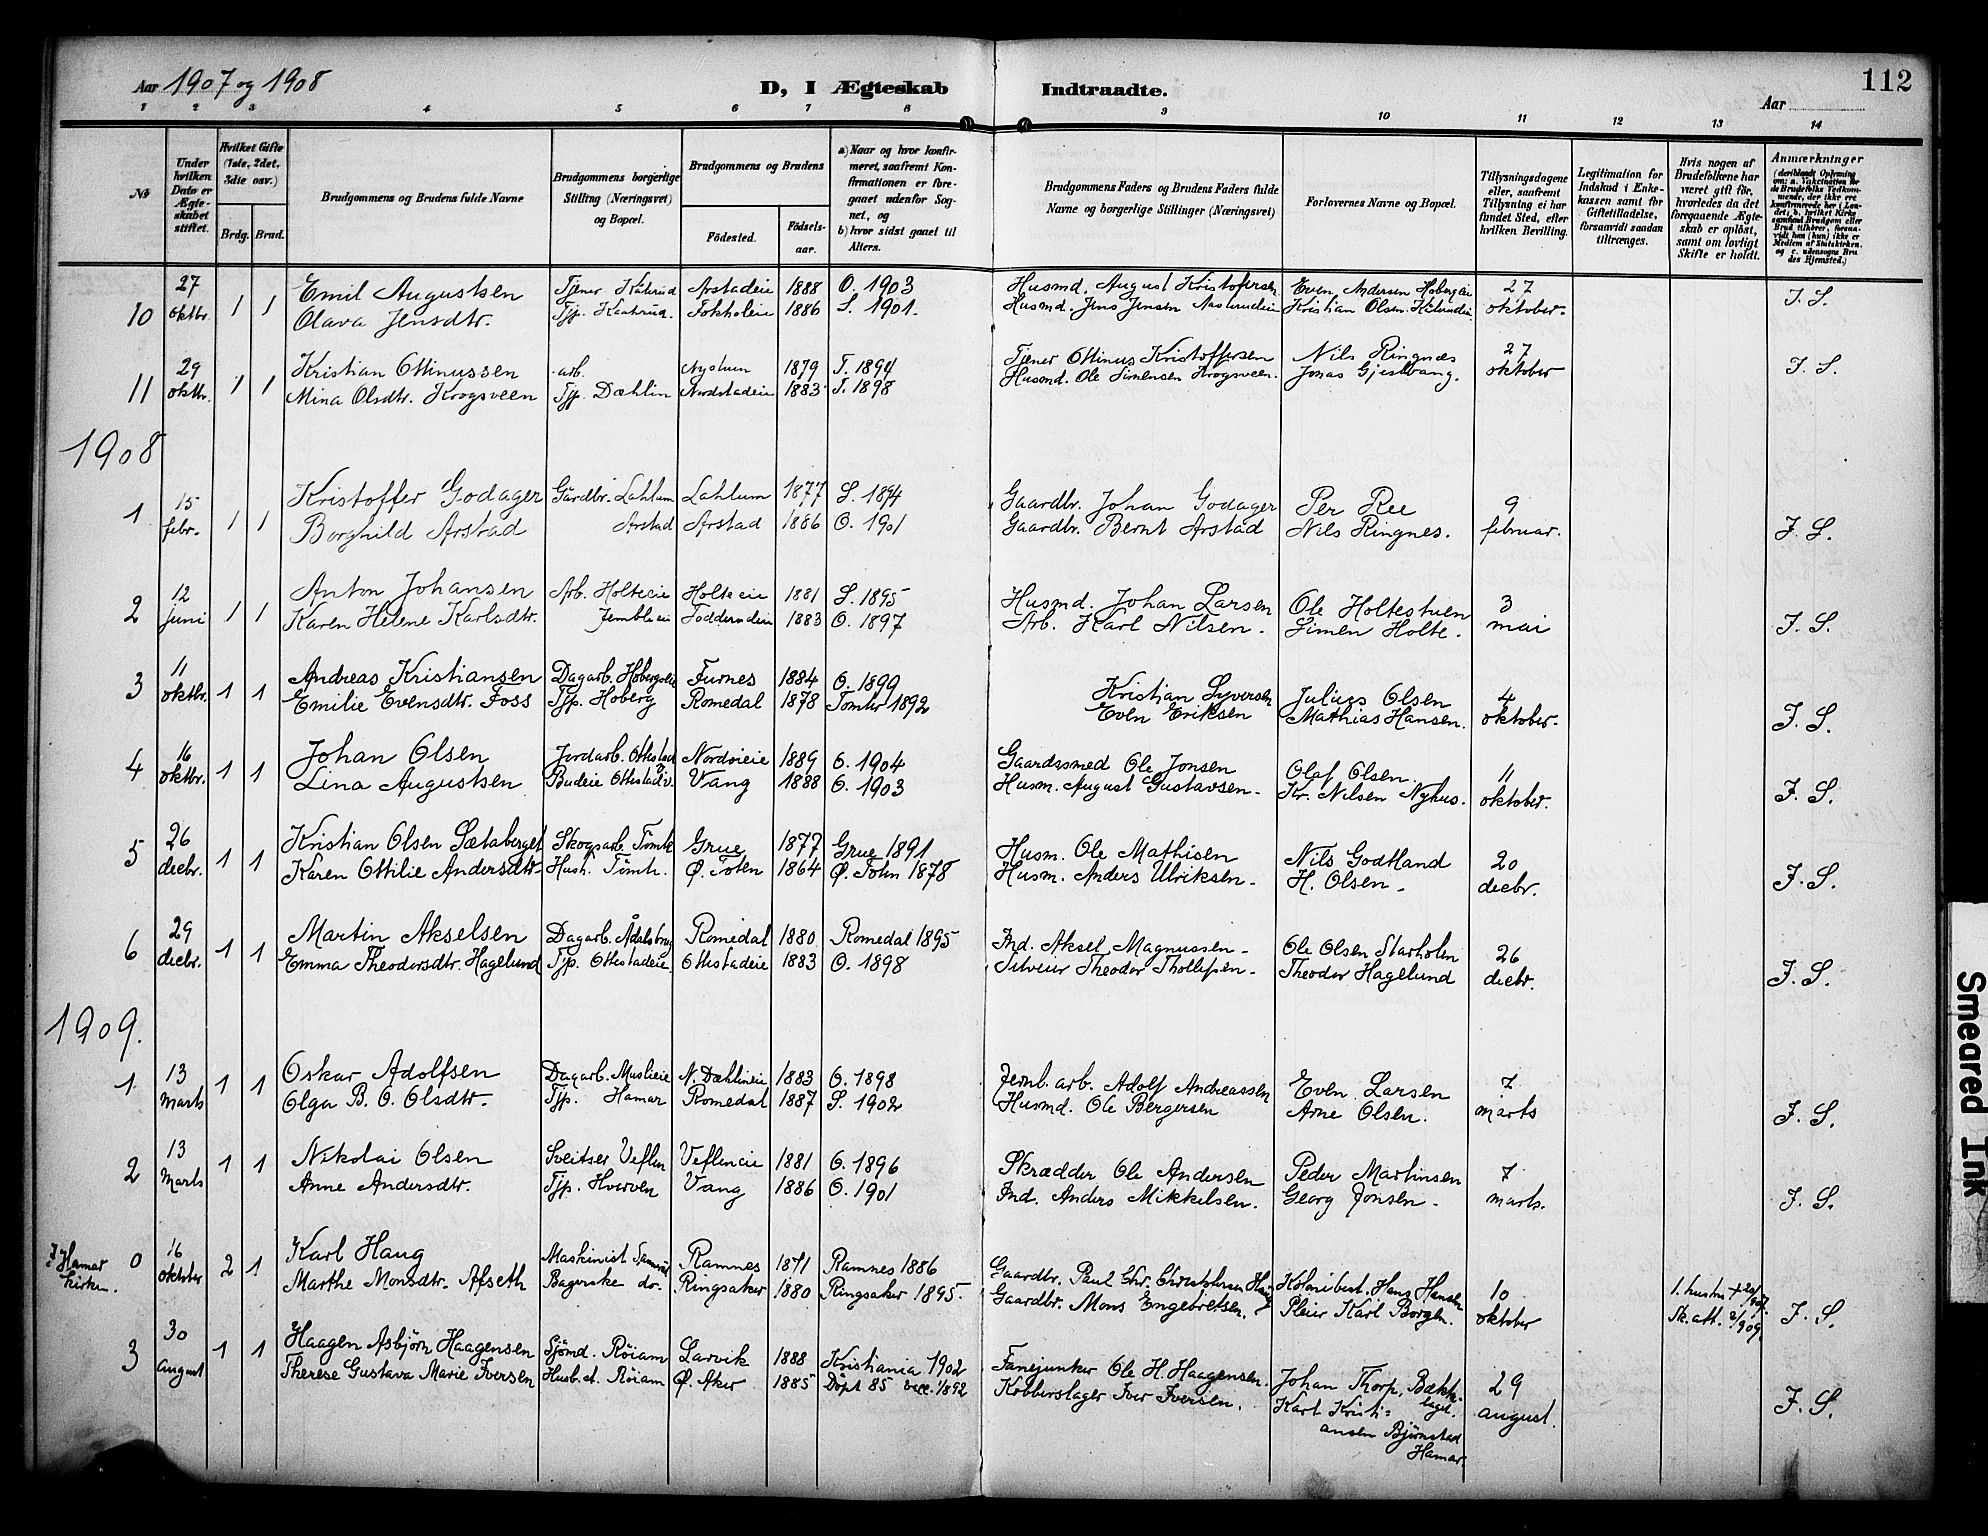 Aar 1907 og 1908
D, I Ægteskab Indtraadte.
112
Aar
1 2 3 4 5 6 7 8 9 10 11 12 13 14
No
Under hvilken Dato er Ægteskabet stiftet.
Hvilket Gifte (1ste, 2det, 3die osv.)
Brdg. Brud.
Brudgommens og Brudens fulde Navne
Brudgommens borgerlige Stilling (Næringsvei) og Bopæl.
Brudgommens og Brudens
Fødested.
Fødselsaar.
a) Naar og hvor konfirmeret, saafremt Konfirmationen er foregaaet udenfor Sognet, og
b) hvor sidst gaaet til Alters.
Brudgommens Faders og Brudens Faders fulde Navne og borgerlige Stillinger (Næringsvei)
Forlovernes Navne og Bopæl.
Tillysningsdagene eller, saafremt Tillysning ei har fundet Sted, efter hvilken Bevilling.
Legitimation for Indskud i Enkekassen samt for Giftetilladelse, forsaavidt saadan tiltrænges.
Hvis nogen af Brudefolkene har været gift før, hvorledes da det foregaaende Ægteskab er opløst, samt om lovligt Skifte er holdt.
Anmærkninger (deriblandt Oplysning om: a. Vakcination for de Brudefolks Vedkommende, der ikke ere konfirmerede her i Landet; b. hvilket Kirkesamfund Brudgom eller Brud tilhører, forsaavidt han (hun) ikke er Medlem af Statskirken, og c. udensogns Brudes Hjemsted.)
27 Emil Augustsen Tjener Katerud Arstadeie 1888 O. 1903 Husmd. August Kristofersen Even Andersen Hobergeie 27 J. S.
10 oktbr. 1 1 Olava Jensdtr. Tjp. Kaatrud. Fokholeie 1886 S. 1901. Husmd. Jens Jensen Kristian Olsen oktober.
29 Kristian Ottinussen arb. Nystuen 1879 T. 1894 Tjener Ottinus Kristoffersen Nils Ringnæs 27 J. S.
11 oktbr. 1 1 Mina Olsdtr. Krogsveen Tjp. Dæhlin Nordstadeie 1883 T. 1898 Husmd. Ole Simensen Krogsveen. Jonas Gjestvang. oktober
1908
15 Kristoffer Godager Gårdbr. Lahlum Lahlum 1877 S. 1894 Gaardbr. Johan Godager Per Ree 9
1 febr. 1 1 Borghild Arstad Arstad Arstad 1886 O. 1901 Gaardbr. Bernt Arstad Nils Ringnes. februar. J. S.
12 Anton Johansen Arb. Holteeie Holteeie 1881 S. 1895 Husmd. Johan Larsen Ole Holtestuen 3
2 juni 1 1 Karen Helene Karlsdtr. Jemblieie Todderudeie 1883 O. 1897 Arb. Karl Nilsen. Simen Holte. mai J. S.
11 Andreas Kristiansen Dagarb. Hobergseie Furnes 1884 O. 1899 Kristian Syversen Julius Olsen 4
3 oktbr. 1 1 Emilie Evensdtr. Foss Tjp. Hoberg Romedal 1878 Tomter 1892 Even Eriksen Mathias Hansen. oktober. J. S.
16 Johan Olsen Jordarb. Ottestad Nordvieie 1889 O. 1904 Gaardssmed Ole Jonsen Olaf Olsen. 11
4 oktbr. 1 1 Lina Augustsen Budeie Ottestad v. Vang 1888 O. 1903 Husm. August Gustavsen. Kr. Nilsen Nyhus. oktober. J. S.
26 Kristian Olsen Sætaberget Skogsarb. Tømte Grue 1877 Grue 1891 Husm. Ole Mathisen Nils Godtland 20
5 decbr. 1 1 Karen Ottilie Andersdtr. Hush. Tømte. Ø. Toten 1864 Ø. Totn 1878 Husm. Anders Ulriksen. H. Olsen. decbr. J. S.
29 Martin Akselsen Dagarb. Ådalsbrug Romedal 1880 Romedal 1895 Ind. Aksel Magnussen Ole Olsen Starholen 26
6 decbr. 1 1 Emma Theodorsdtr. Hagelund Tjp. Ottestadeie Ottestadeie 1883 O. 1898 Theodor Thollefsen Theodor Hagelund decbr. J. S.
1909.
13 Oskar Adolfsen Dagarb. Muslieie N. Dæhlineie 1883 O. 1898 Jernb. arb. Adolf Andreassen Even Larsen 7
1 Marts 1 1 Olga B. O. Olsdtr. Tjp. Hamar Romedal 1887 S. 1902 Husmd. Ole Bergersen Arne Olsen. marts J. S.
13 Nikolai Olsen Sveitser Veflen Veflineie 1881 O. 1896 Skrædder Ole Andersen Peder Martinsen 7
2 Marts 1 1 Anne Andersdtr. Tjp. Hverven Vang 1886 O. 1901 Ind. Anders Mikkelsen. Georg Jonsen. marts. J. S.
I Hamar kirke. 0 16 oktober 2 1 Karl Haug Maskinist Ramnes 1871 Ramnes 1886 Gaardbr. Paul Chr. Christofersen Haug Kolonibest. Hans Hansen 10 1. hustru + 20/ 907.
Marthe Monsdtr. Afseth Bagerske do. Ringsaker 1880 Ringsaker 1895. Gaardbr. Mons Engebretsen. Pleier Karl Borgen. oktober Sk. att. 2/ 909. J. S.
30 Haagen Asbjørn Haagensen Sjømd. Røiam Larvik 1888 Kristiania 1902 Fanejunker Ole H. Haagensen. Johan Thorp, Bækkelaget. 29
3 august 1 1 Therese Gustava Marie Iversen Husb.st. Røiam Ø. Aker 1885 Døpt 85 vacc. 1892 Kobberslager Iver Iversen. Karl Kristiansen Bjørnstad Hamar. august. J. S.
Smeared Ink